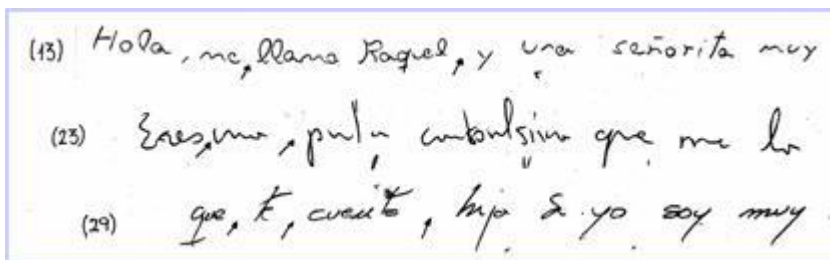 (13) Hola, me, llamo Raquel, y una señorita muy
(23) Eres, una, puta conbulsiva que me lo
(29) que, te, cuento, hija Si yo soy muy